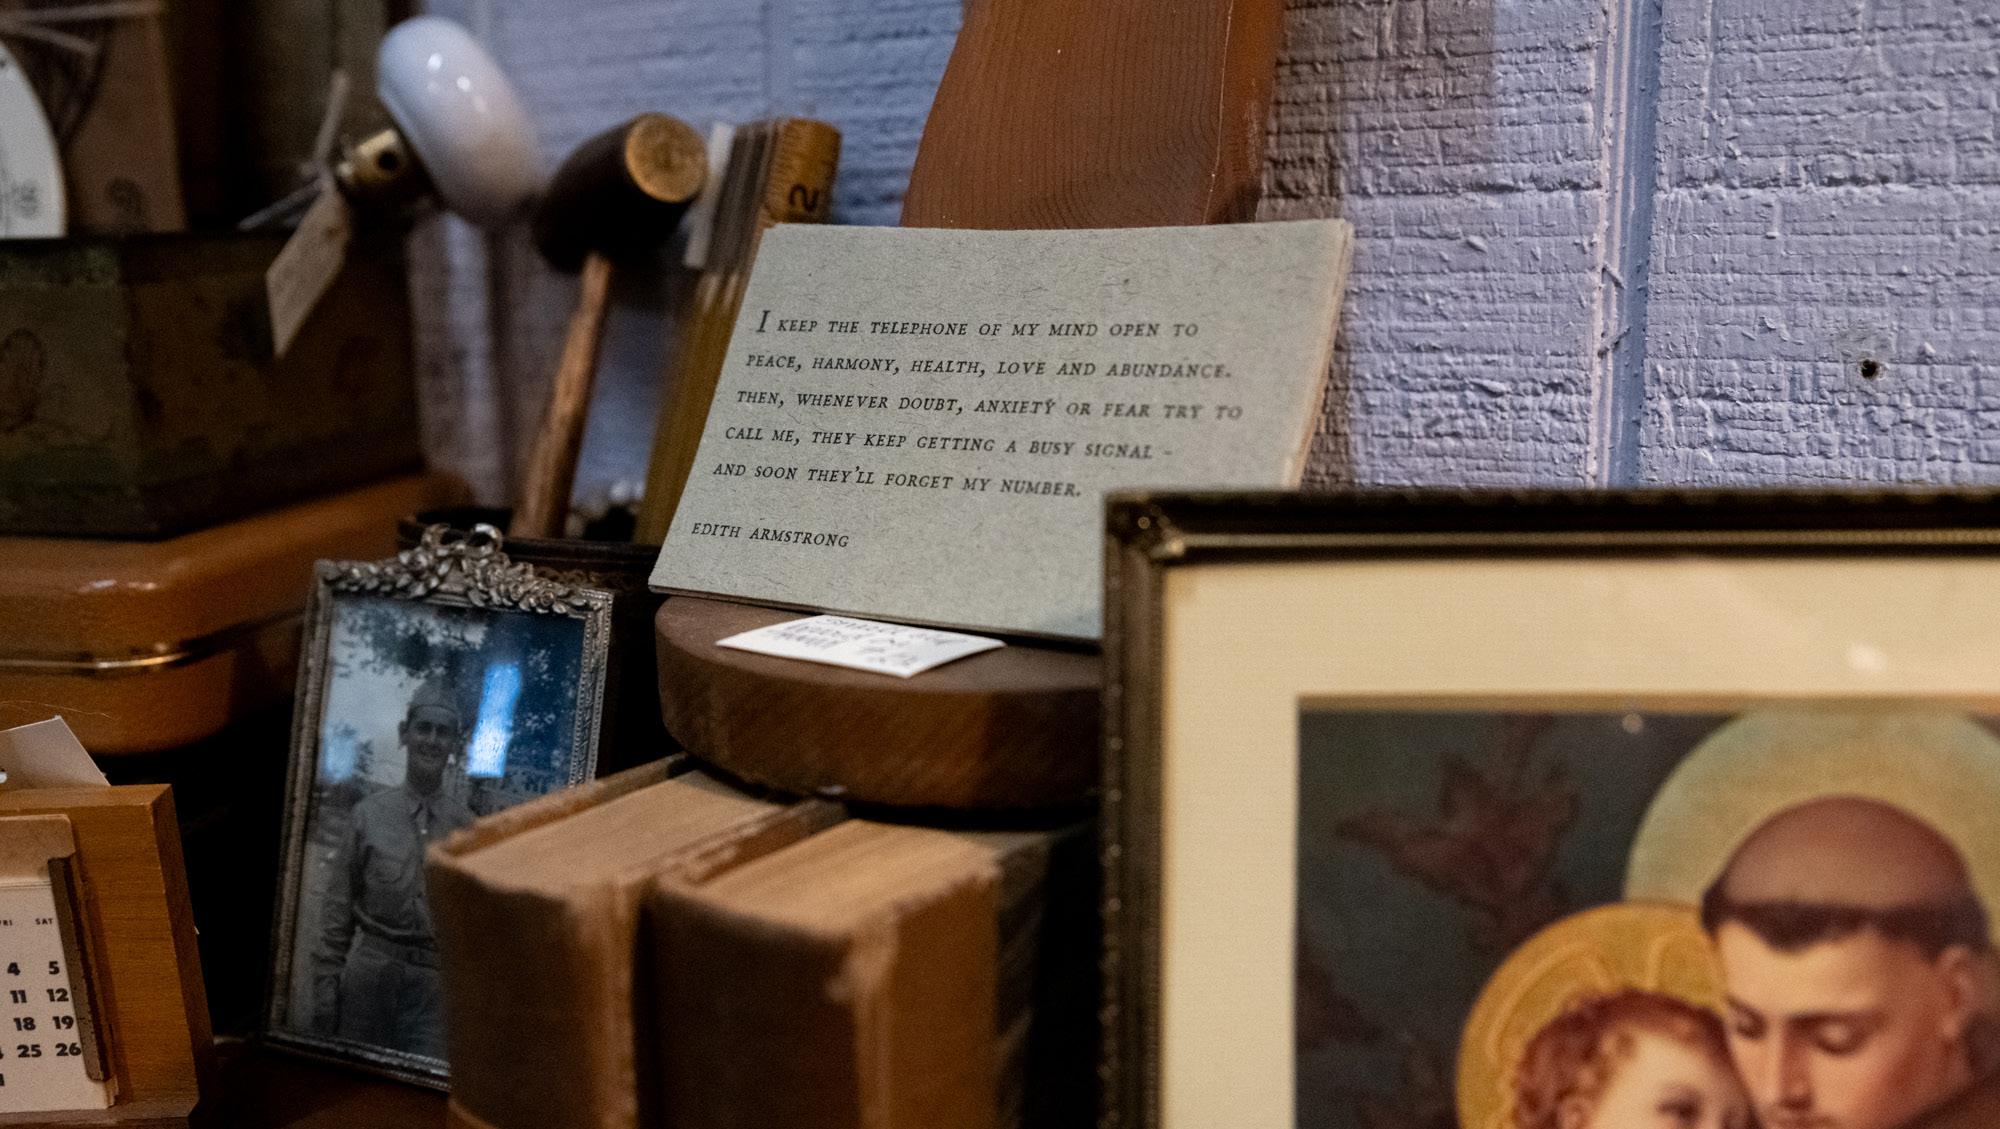 2
I KEEP THE TELEPHONE OF MY MIND OPEN TO
PEACE, HARMONY, HEALTH, LOVE AND ABUNDANCE.
THEN, WHENEVER DOUBT, ANXIETY OR FEAR TRY TO
CALL ME, THEY KEEP GETTING A BUSY SIGNAL -
AND SOON THEY'LL FORGET MY NUMBER.
EDITH ARMSTRONG
FRI SAT
4 5
11 12
18 19
25 26